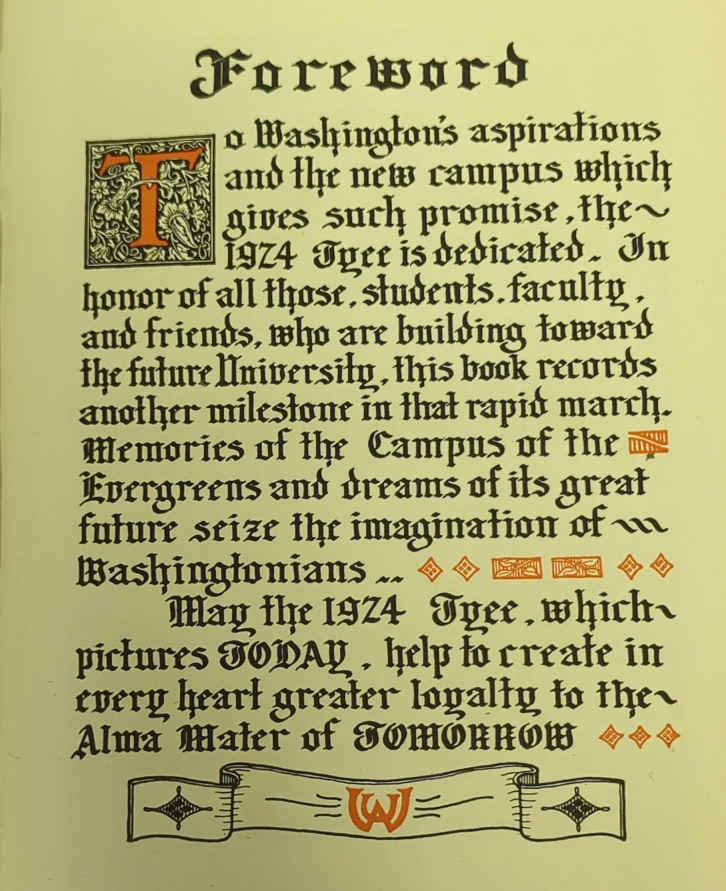 Foreword
To Washington's aspirations
and the new campus which
gives such promise, the
1924 Tyee is dedicated. In
honor of all those, students, faculty,
and friends, who are building toward
the future University, this book records
another milestone in that rapid march.
Memories of the Campus of the
Evergreens and dreams of its great
future seize the imagination of
Washingtonians ..
May the 1924 Tyee, which
pictures TODAY, help to create in
every heart greater loyalty to the
Alma Mater of TOMORROW
UW